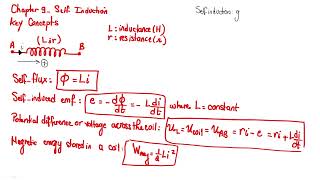 Chapter 9_ Self Induction
Self induction g
Key Concepts
L: inductance (H)
r: resistance (Ω)
(L, r)
A
i
B
Self-flux: Φ = Li
Self-induced emf: e = -dΦ/dt = -L di/dt where L = constant
Potential difference or voltage across the coil: u_L = u_coil = u_AB = ri - e = ri + L di/dt
Magnetic energy stored in a coil: W_mag = 1/2 Li²